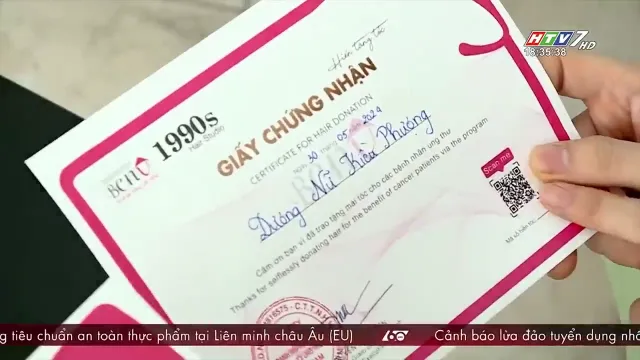 HTV7 HD
18:35:38
Hiến tặng tóc
BCNV
1990s
Hair Studio
GIẤY CHỨNG NHẬN
CERTIFICATE FOR HAIR DONATION
30 05 2024
Dương Nữ Kiều Phượng
Cảm ơn bạn vì đã trao tặng mái tóc cho các bệnh nhân ung thư
Thanks for selflessly donating hair for the benefit of cancer patients via the program
Scan me
Mã số hiến tóc:
16575 - C.T.T.N.H
g tiêu chuẩn an toàn thực phẩm tại Liên minh châu Âu (EU)
60
Cảnh báo lừa đảo tuyển dụng nhâ